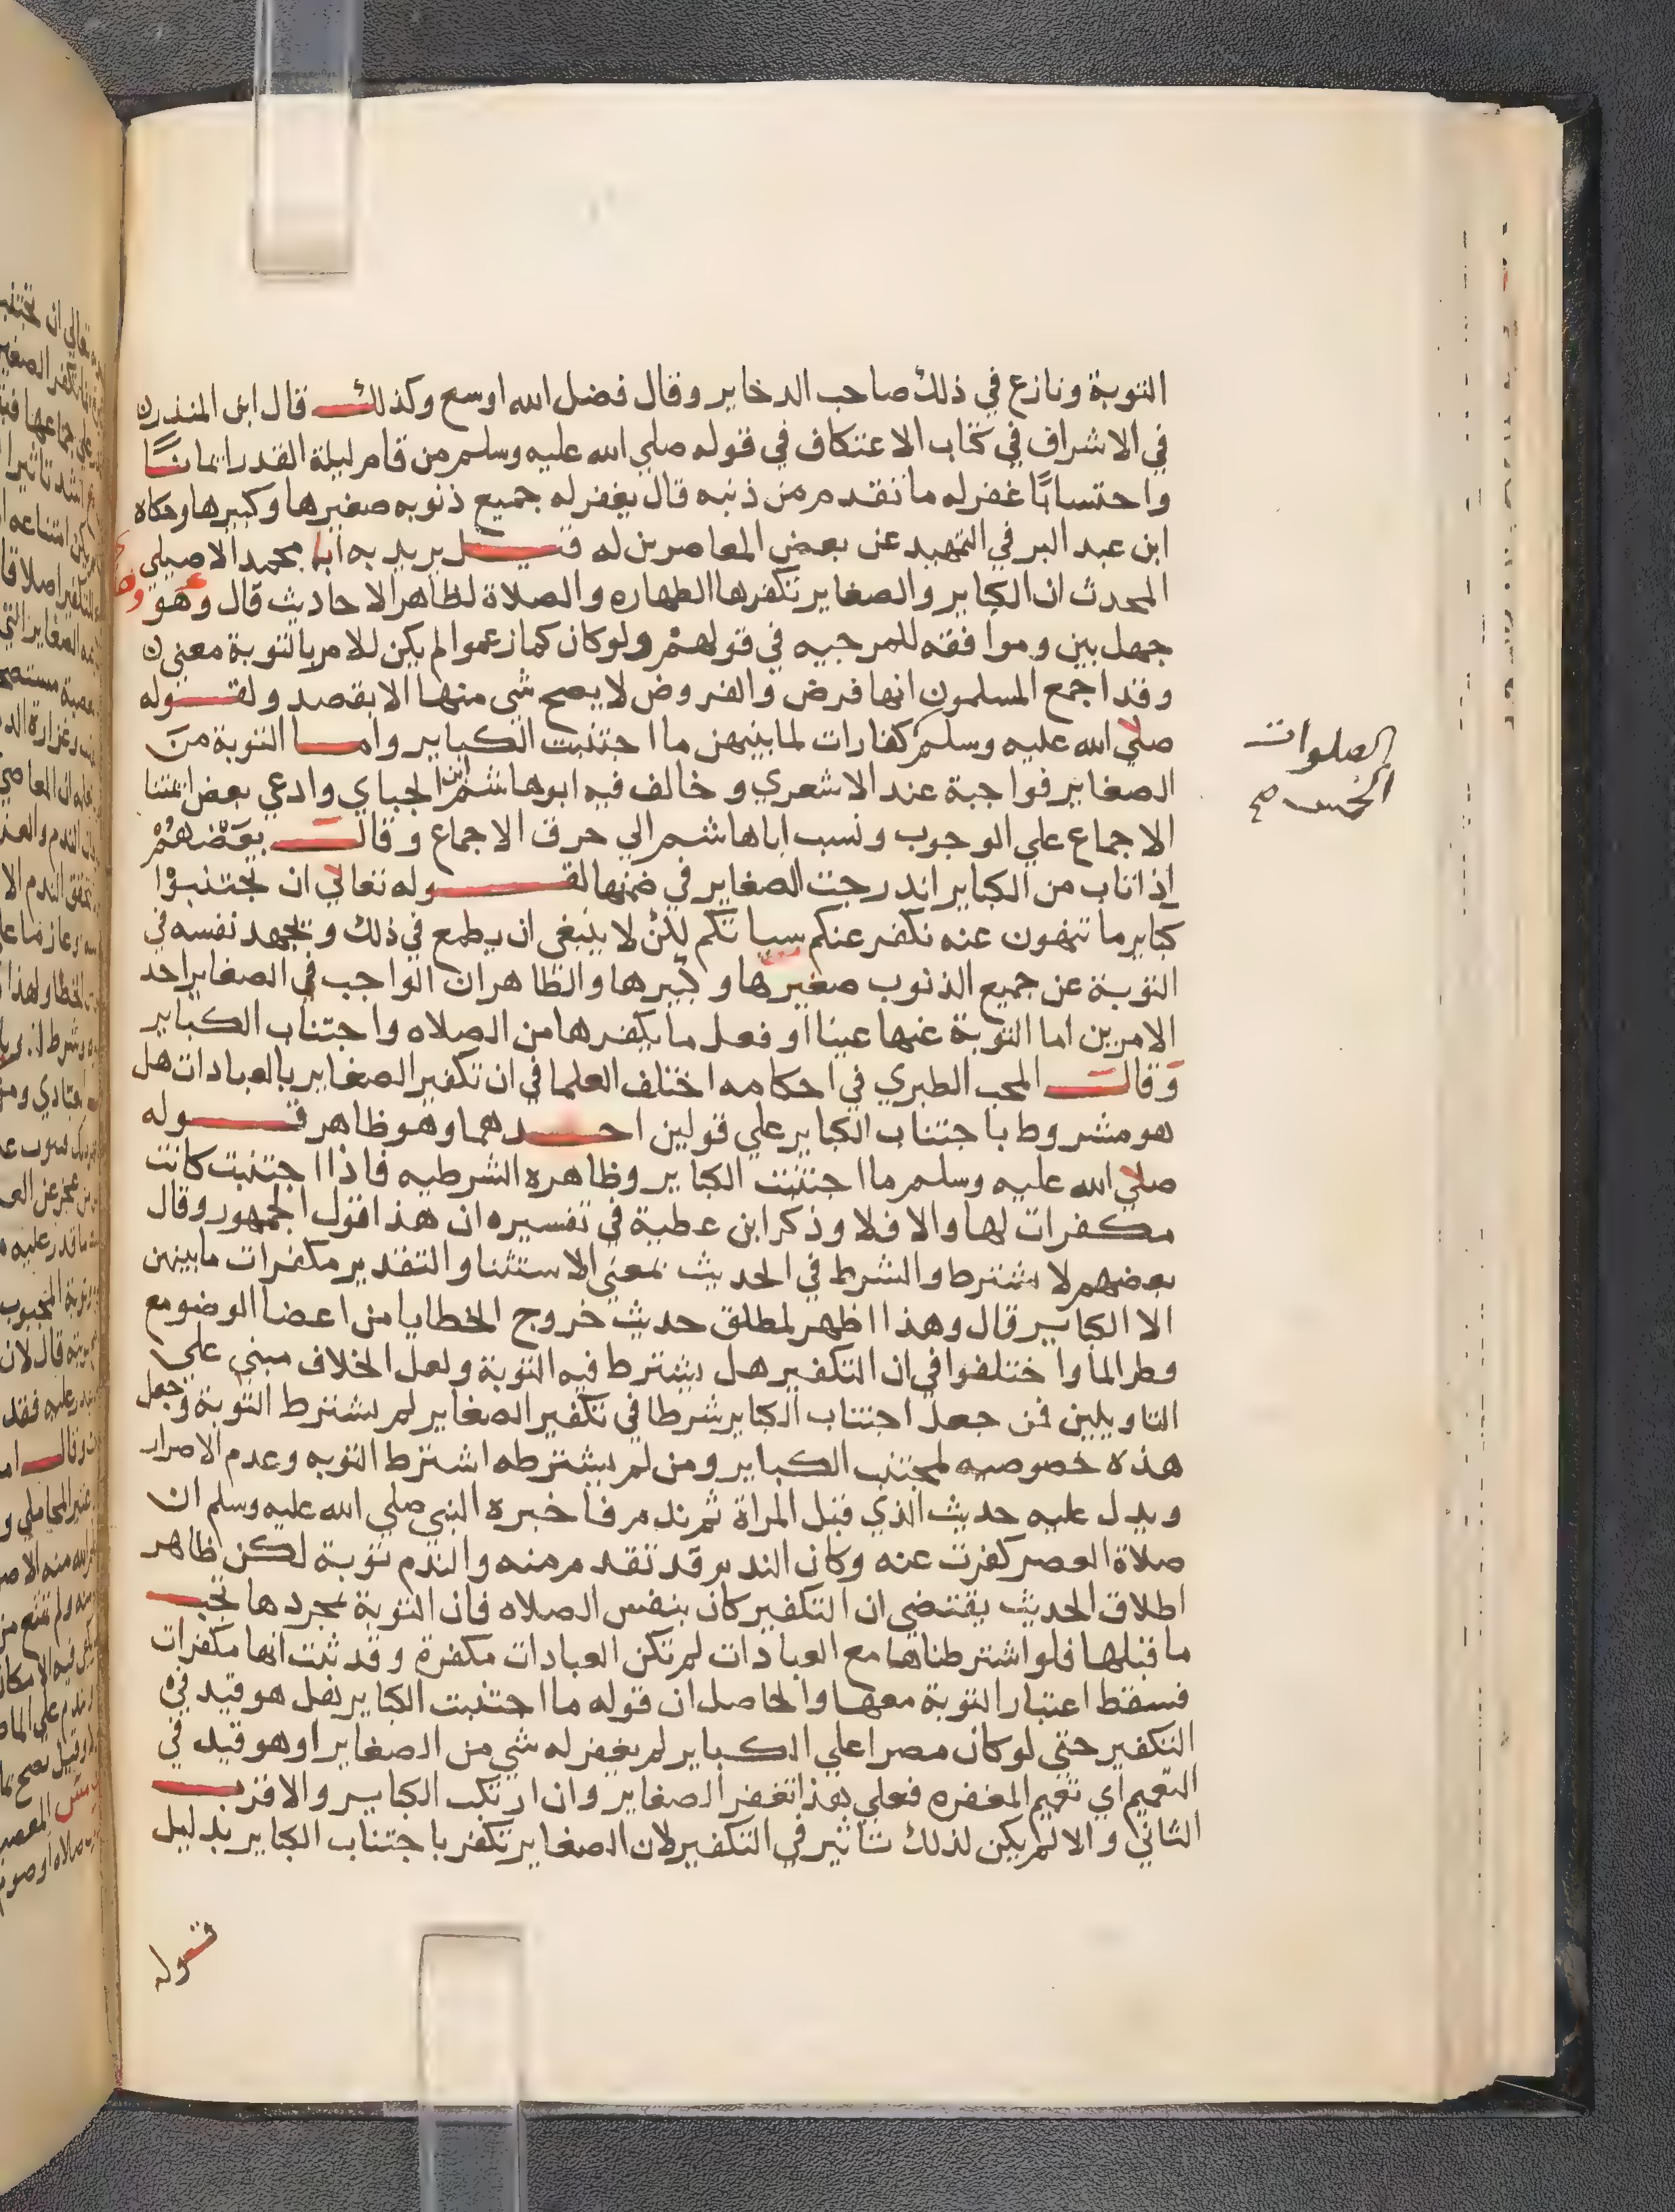 التوبة ونازع في ذلك صاحب الدخاير وقال فضل الله اوسع وكذلك قال ابن المنذر
في الاشراف في كتاب الاعتكاف في قوله صلي الله عليه وسلم من قام ليلة القدر ايمانًا
واحتسابًا غفر له ما تقدم من ذنبه قال يغفر له جميع ذنوبه صغيرها وكبيرها وحكاه
ابن عبد البر في التمهيد عن بعض المعاصرين له قيل يريد به ابا محمد الاصيلي
المحدث ان الكباير والصغاير تكفرها الطهاره والصلاة لظاهر الاحاديث قال وهو
جهل بين وموافقه للمرجيه في قولهم ولو كان كما زعموا لم يكن للامر بالتوبة معني
وقد اجمع المسلمون انها فرض والفروض لا يصح شي منها الا بقصد ولقوله
صلي الله عليه وسلم كفارات لما بينهن ما اجتنبت الكباير واما التوبة من
الصلوات
الخمس صح
الصغاير فواجبة عند الاشعري وخالف فيه ابو هاشم ابن الجباي وادعي بعض ايمتنا
الاجماع علي الوجوب ونسب اباها شم الي خرق الاجماع وقال بعضهم
اذا تاب من الكباير اندرجت الصغاير في ضمنها لقوله تعالي ان تجتنبوا
كباير ما تنهون عنه نكفر عنكم سياتكم لكن لا ينبغي ان يطمع في ذلك ويجهد نفسه في
التوبة عن جميع الذنوب صغيرها وكبيرها والظاهر ان الواجب في الصغاير احد
الامرين اما التوبة عنها عينا او فعل ما يكفرها من الصلاه واجتناب الكباير
وقال المحب الطبري في احكامه اختلف العلما في ان تكفير الصغاير بالعبادات هل
هو مشروط باجتناب الكباير علي قولين احدهما وهو ظاهر قوله
صلي الله عليه وسلم ما اجتنبت الكباير وظاهره الشرطيه فاذا اجتنبت كانت
مكفرات لها والا فلا وذكر ابن عطية في تفسيره ان هذا قول الجمهور وقال
بعضهم لا يشترط والشرط في الحديث بمعني الاستثنا والتقدير مكفرات ما بينهن
الا الكباير قال وهذا اظهر لمطلق حديث خروج الخطايا من اعضا الوضو مع
قطر الما واختلفوا في ان التكفير هل يشترط فيه التوبة ولعل الخلاف مبني علي
التاويلين فمن جعل اجتناب الكباير شرطا في تكفير الصغاير لم يشترط التوبة وجعل
هذه خصوصيه لمجتنب الكباير ومن لم يشترطه اشترط التوبه وعدم الاصرار
ويدل عليه حديث الذي قبل المراة ثم ندم فاخبره النبي صلي الله عليه وسلم ان
صلاة العصر كفرت عنه وكان الندم قد تقدم منه والندم توبة لكن ظاهر
اطلاق الحديث يقتضي ان التكفير كان بنفس الصلاه فان التوبة بمجردها تجب
ما قبلها فلو اشترطناها مع العبادات لم تكن العبادات مكفرة وقد ثبت انها مكفرات
فسقط اعتبار التوبة معها والحاصل ان قوله ما اجتنبت الكباير هل هو قيد في
التكفير حتي لو كان مصرا علي الكباير لم يغفر له شي من الصغاير او هو قيد في
التعميم اي تعميم المغفره فعلي هذا تغفر الصغاير وان ارتكب الكباير والاقرب
الثاني والا لم يكن لذلك تاثير في التكفير لان الصغاير تكفر باجتناب الكباير بدليل
قوله